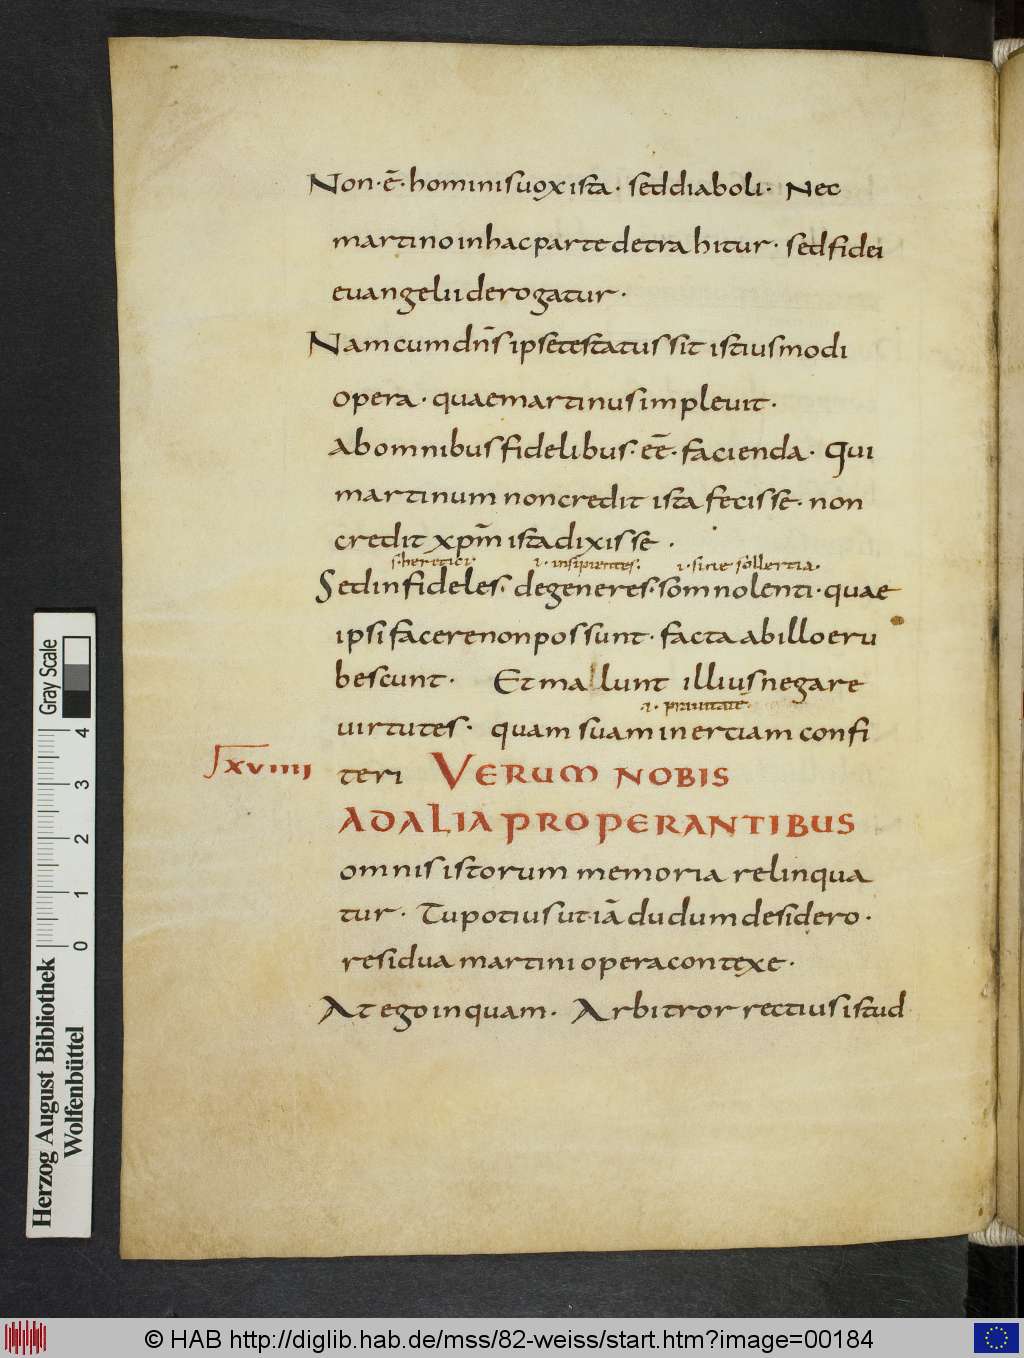 Non · ē · hominis uox ista · sed diaboli · Nec
martino in hac parte detrahitur · sed fidei
euangelii derogatur ·
Nam cum dn̄s ipse testatus sit istius modi
opera · quae martinus impleuit ·
ab omnibus fidelibus · eē · facienda · Qui
martinum non credit ista fecisse · non
credit xpm̄ ista dixisse ·
s · heretici · i · insipientes · i · sine sollertia ·
Sed infideles · degeneres · somnolenti · quae
ipsi facere non possunt · facta ab illo eru
bescunt · Et mallunt illius negare
uirtutes · quam suam inertiam confi
xviiii teri VERUM NOBIS
AD ALIA PROPERANTIBUS
omnis istorum memoria relinqua
tur · Tu potius ut iā dudum desidero ·
residua martini opera contexe ·
At ego inquam · Arbitror rectius istud
Gray Scale
4
3
2
1
0
Herzog August Bibliothek
Wolfenbüttel
© HAB http://diglib.hab.de/mss/82-weiss/start.htm?image=00184